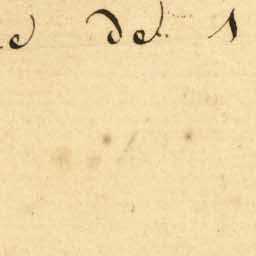 e de 1